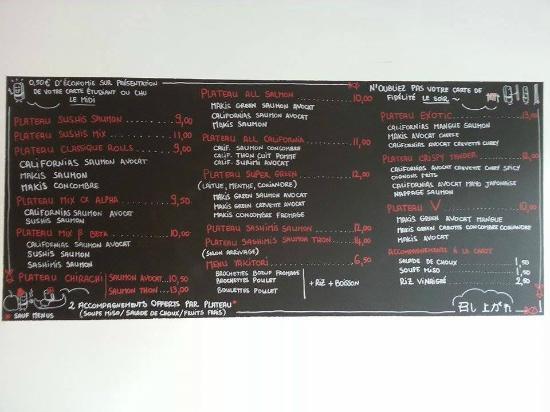 0,50€ D'ÉCONOMIE SUR PRÉSENTATION
DE VOTRE CARTE ÉTUDIANT OU CHU
LE MIDI
PLATEAU SUSHIS SAUMON 9,00
PLATEAU SUSHIS MIX 11,00
PLATEAU CLASSIQUE ROLLS 9,00
CALIFORNIAS SAUMON AVOCAT
MAKIS SAUMON
MAKIS CONCOMBRE
PLATEAU MIX α ALPHA 9,50
CALIFORNIAS SAUMON AVOCAT
SUSHIS SAUMON
PLATEAU MIX β BETA 10,00
CALIFORNIAS SAUMON AVOCAT
SUSHIS SAUMON
SASHIMIS SAUMON
PLATEAU CHIRACHI SAUMON AVOCAT 10,50
SAUMON THON 13,00
* SAUF MENUS
2 ACCOMPAGNEMENTS OFFERTS PAR PLATEAU*
(SOUPE MISO/SALADE DE CHOUX/FRUITS FRAIS)
PLATEAU ALL SALMON 10,00
MAKIS GREEN SAUMON AVOCAT
CALIFORNIAS SAUMON AVOCAT
MAKIS SAUMON
PLATEAU ALL CALIFORNIA 11,00
CALIF. SAUMON CONCOMBRE
CALIF. THON CUIT POMME
CALIF. SURIMI AVOCAT
PLATEAU SUPER GREEN 12,00
(LAITUE, MENTHE, CORIANDRE)
MAKIS GREEN SAUMON AVOCAT
MAKIS GREEN CREVETTE AVOCAT
MAKIS CONCOMBRE FROMAGE
PLATEAU SASHIMIS SAUMON 12,00
PLATEAU SASHIMIS SAUMON THON 14,00
(SELON ARRIVAGE)
MENU YAKITORI 6,50
BROCHETTES BŒUF FROMAGE
BROCHETTES POULET
BOULETTES POULET
+ RIZ + BOISSON
N'OUBLIEZ PAS VOTRE CARTE DE
FIDÉLITÉ LE SOIR
PLATEAU EXOTIC 13,00
CALIFORNIAS MANGUE SAUMON
MAKIS AVOCAT CHEESE
CALIFORNIAS AVOCAT CREVETTE CURRY
PLATEAU CRISPY TENDER 12,00
CALIFORNIAS AVOCAT CREVETTE CURRY SPICY
OIGNONS FRITS
CALIFORNIAS AVOCAT MAYO JAPONAISE
NAPPAGE SAUMON
PLATEAU V 10,00
MAKIS GREEN AVOCAT MANGUE
MAKIS GREEN CAROTTE CONCOMBRE CORIANDRE
MAKIS AVOCAT
ACCOMPAGNEMENTS A LA CARTE
SALADE DE CHOUX 1,50
SOUPE MISO 1,50
RIZ VINAIGRÉ 2,50
召し上がれ